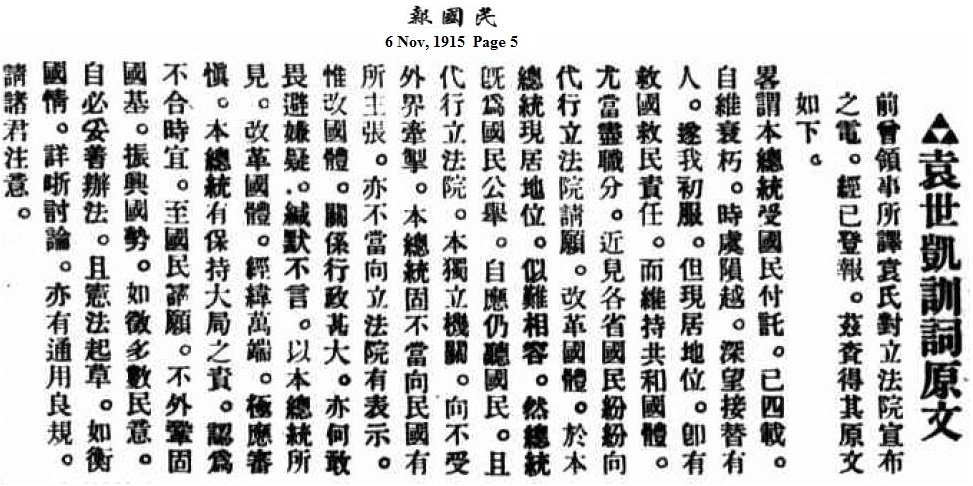 民國報
6 Nov, 1915 Page 5
▲袁世凱訓詞原文
前曾領事所譯袁氏對立法院宣布
之電。經已登報。茲查得其原文
如下。
畧謂本總統受國民付託。已四載。
自維衰朽。時處隕越。深望接替有
人。遂我初服。但現居地位。卽有
救國救民責任。而維持共和國體。
尤當盡職分。近見各省國民紛紛向
代行立法院請願。改革國體。於本
總統現居地位。似難相容。然總統
旣爲國民公舉。自應仍聽國民。且
代行立法院。本獨立機關。向不受
外界牽掣。本總統固不當向民國有
所主張。亦不當向立法院有表示。
惟改國體。關係行政甚大。亦何敢
畏避嫌疑。緘默不言。以本總統所
見。改革國體。經緯萬端。極應審
愼。本總統有保持大局之責。認爲
不合時宜。至國民請願。不外鞏固
國基。振興國勢。如徵多數民意。
自必妥善辦法。且憲法起草。如衡
國情。詳晰討論。亦有通用良規。
請諸君注意。